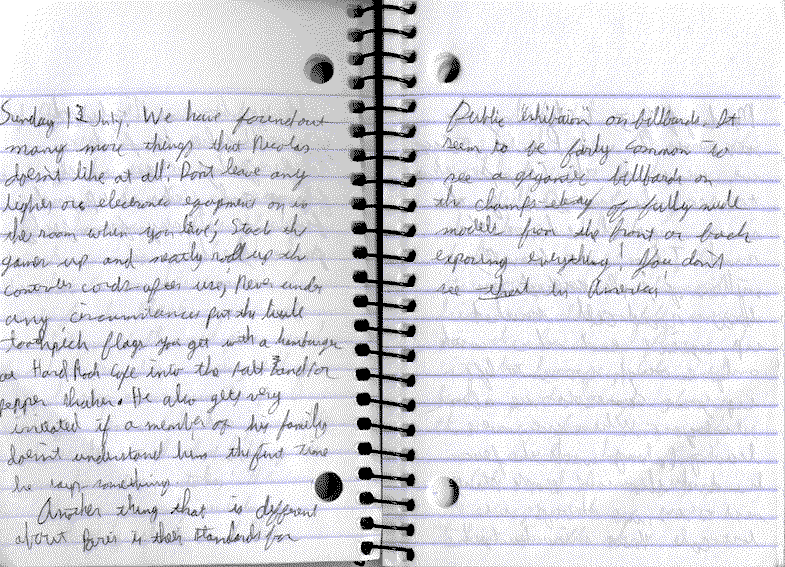 Sunday 13 July. We have found out
many more things that Nicolas
doesn't like at all: Don't leave any
lights or electronic equipment on in
the room when you leave; Stack the
games up and neatly roll up the
controler cords after use; Never under
any circumstances put the little
toothpick flags you get with a hamburger
at Hard Rock Cafe into the salt and/or
pepper shaker. He also gets very
irritated if a member of his family
doesn't understand him the first time
he says something.
Another thing that is different
about Paris is their standards for
Public "exhibition" on billboards. It
seem to be fairly common to
see a gigantic billboards on
the champs of fully nude
models from the front or back
exposing everything! You don't
see that in America!